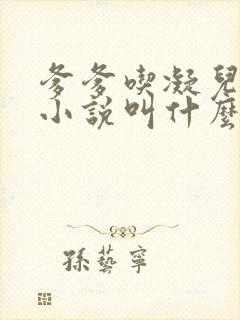 爹爹喫凝兒
小說叫什麼
孫藝寧